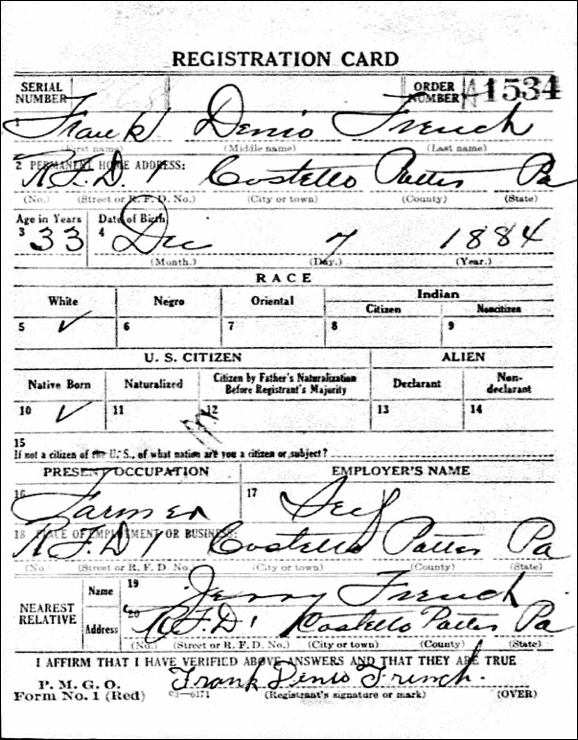 REGISTRATION CARD
SERIAL NUMBER ORDER NUMBER A1534
1 Frank Denio French
(First name) (Middle name) (Last name)
2 PERMANENT HOME ADDRESS:
R.F.D. 1 Costello Potter Pa
(No.) (Street or R. F. D. No.) (City or town) (County) (State)
Age in Years Date of Birth
3 33 4 Dec 7 1884
(Month.) (Day.) (Year.)
RACE
White Negro Oriental Indian
Citizen Noncitizen
5 ✓ 6 7 8 9
U. S. CITIZEN ALIEN
Native Born Naturalized Citizen by Father's Naturalization Before Registrant's Majority Declarant Non-declarant
10 ✓ 11 12 13 14
15
If not a citizen of the U. S., of what nation are you a citizen or subject?
PRESENT OCCUPATION EMPLOYER'S NAME
16 Farmer 17 Self
18 PLACE OF EMPLOYMENT OR BUSINESS:
R.F.D 1 Costello Potter Pa
(No.) (Street or R. F. D. No.) (City or town) (County) (State)
NEAREST RELATIVE
Name 19 Jenny French
Address 20 R.F.D1 Costello Potter Pa
(No.) (Street or R. F. D. No.) (City or town) (County) (State)
I AFFIRM THAT I HAVE VERIFIED ABOVE ANSWERS AND THAT THEY ARE TRUE
P. M. G. O.
Form No. 1 (Red) 03—6171 Frank Denio French.
(Registrant's signature or mark) (OVER)